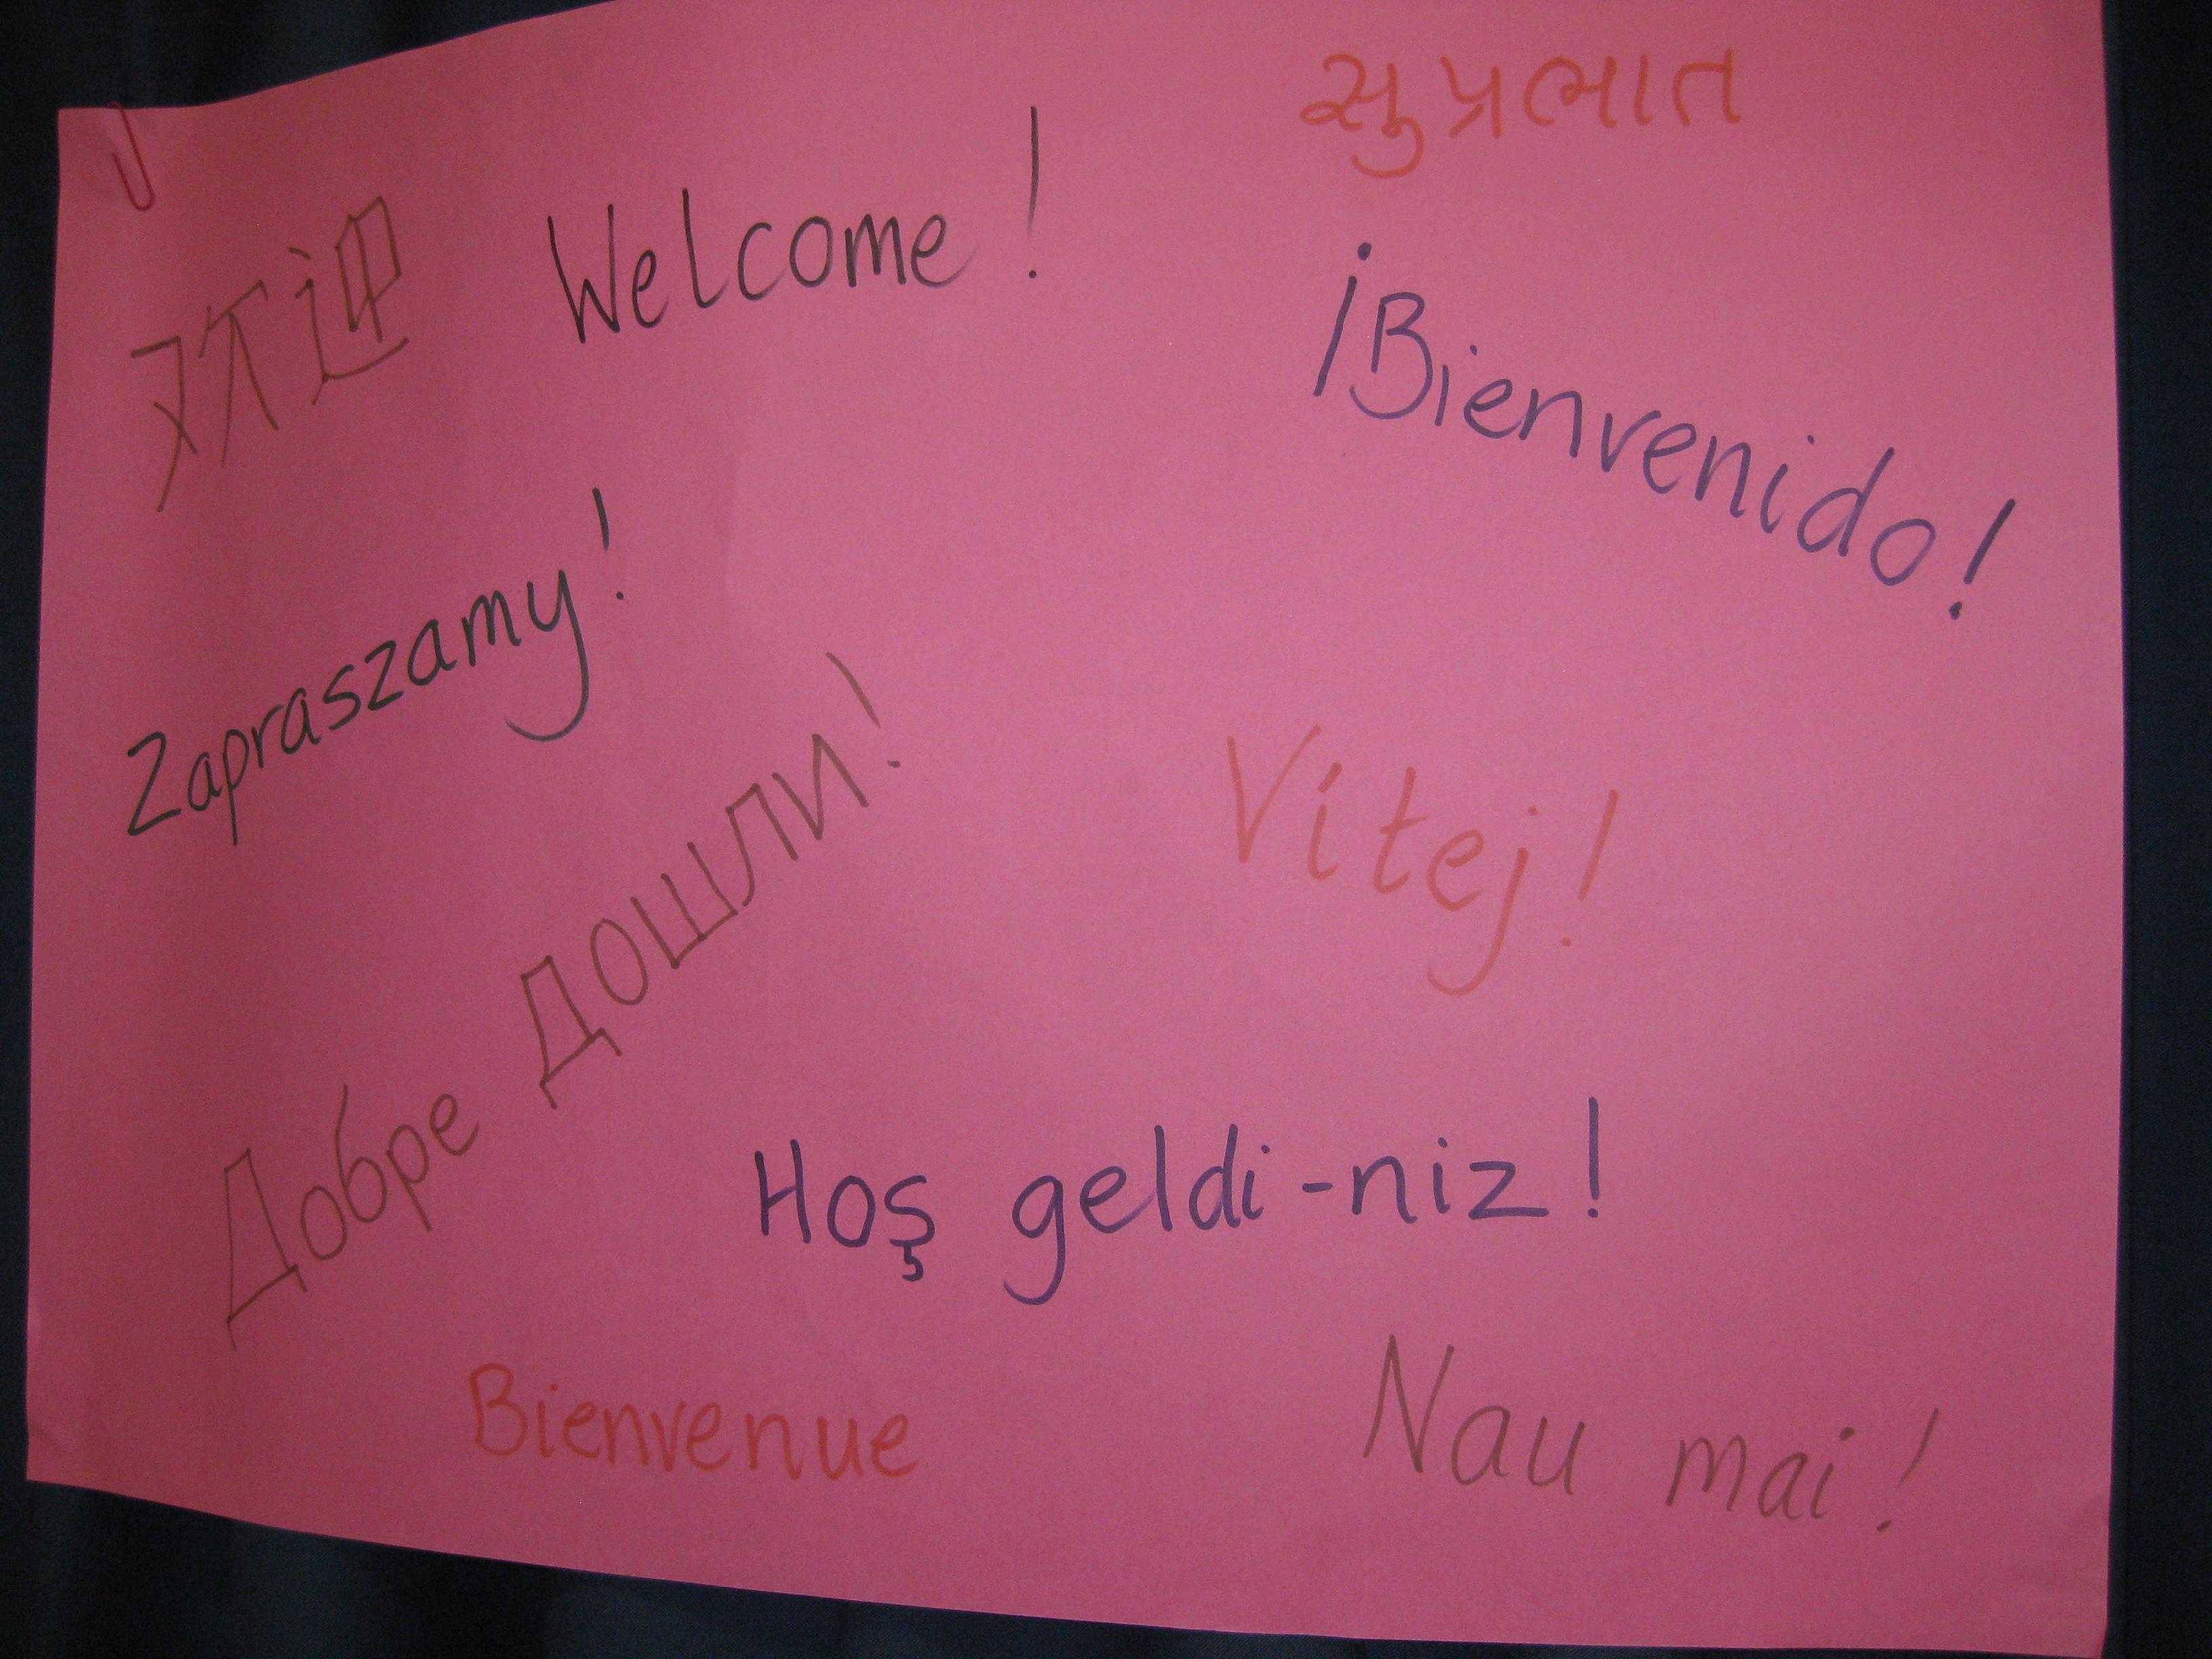 સુપ્રભાત
欢迎 Welcome!
¡Bienvenido!
Zapraszamy!
Vítej!
Добре дошли!
Hoş geldi-niz!
Bienvenue
Nau mai!